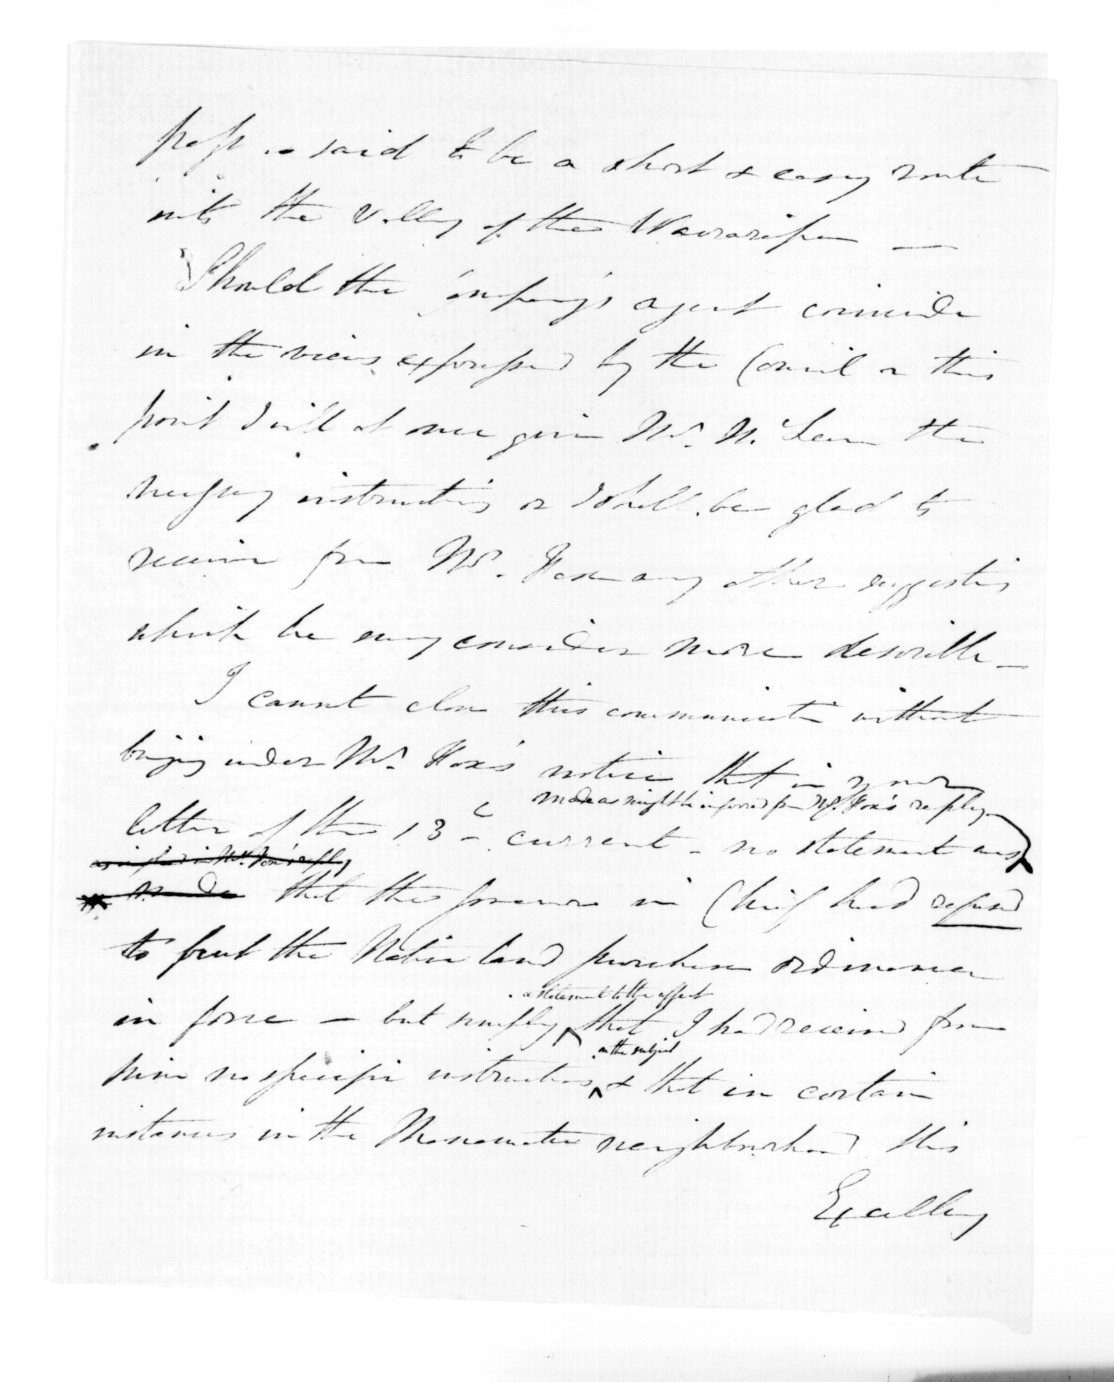 pass is said to be a short & easy route
into the Valley of the Wairarapa —
Should the Company's agent coincide
in the views expressed by the Council on this
point I will at once give Mr. McLean the
necessary instructions or I shall be glad to
receive from Mr. Fox any other suggestions
which he may consider more desirable —
I cannot close this communication without
bringing under Mr. Fox's notice that in your
made as might be inferred from Mr. Fox's reply
letter of the 13th current – no statement was
as implied in Mr. Fox's reply
made that the Governor in Chief had refused
to put the Native land purchase ordinance
a statement to the effect
in force — but simply that I had received from
on the subject
him no specific instructions & that in certain
instances in the Manawatu neighbourhood this
Excellency